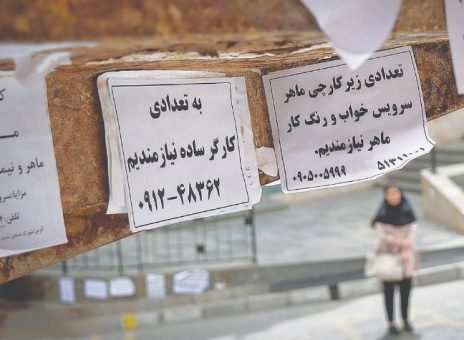 به تعدادی
کارگر ساده نیازمندیم
۰۹۱۲-۴۸۳۶۲
تعدادی زیرکارچی ماهر
سرویس خواب و رنگ کار
ماهر نیازمندیم.
۰۹۰۵۰۰۵۹۹۹
ماهر و نیمه